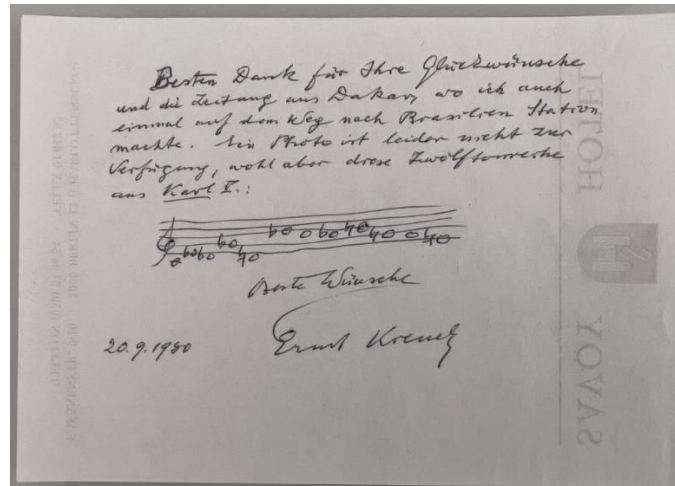 Besten Dank für Ihre Glückwünsche
und die Zeitung aus Dakar, wo ich auch
einmal auf dem Weg nach Brasilien Station
machte. Ein Photo ist leider nicht zur
Verfügung, wohl aber diese Zwölftonreihe
aus Karl V.:
Beste Wünsche
20.9.1980 Ernst Krenek
HOTEL
SAVOY